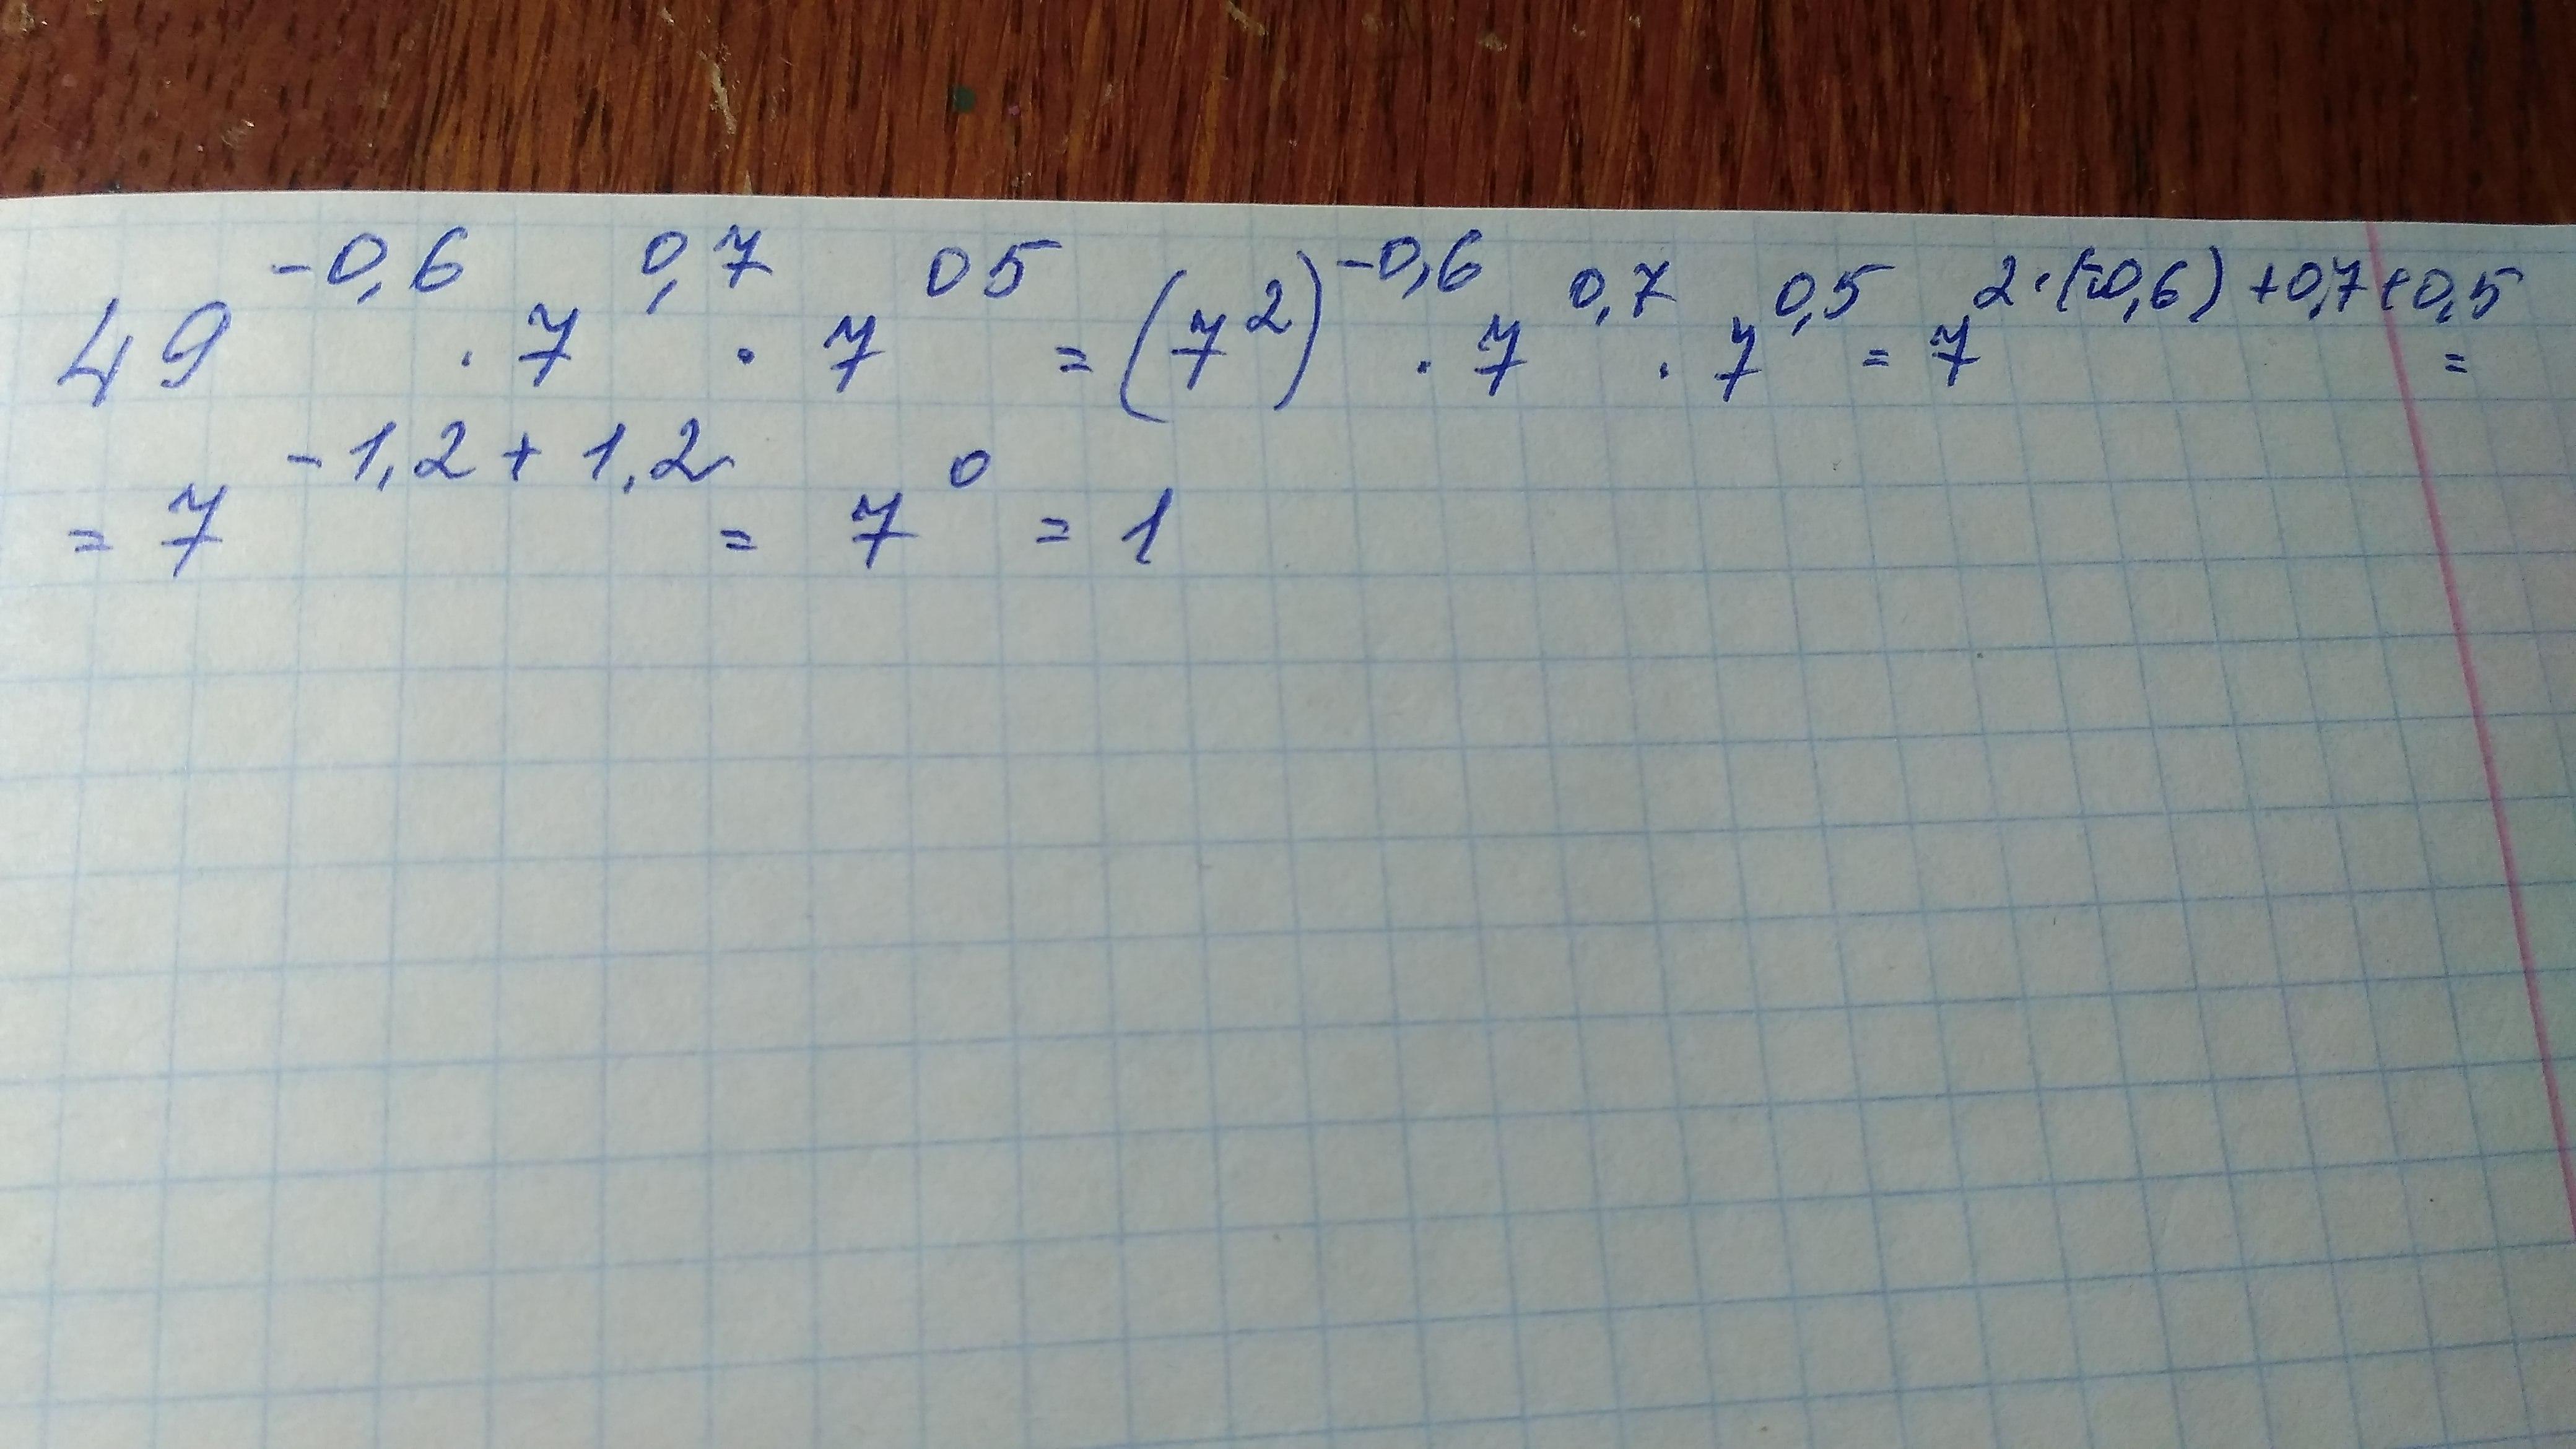 49^{-0,6} · 7^{0,7} · 7^{05} = (7^2)^{-0,6} · 7^{0,7} · 7^{0,5} = 7^{2·(-0,6)+0,7+0,5} =
= 7^{-1,2+1,2} = 7^0 = 1